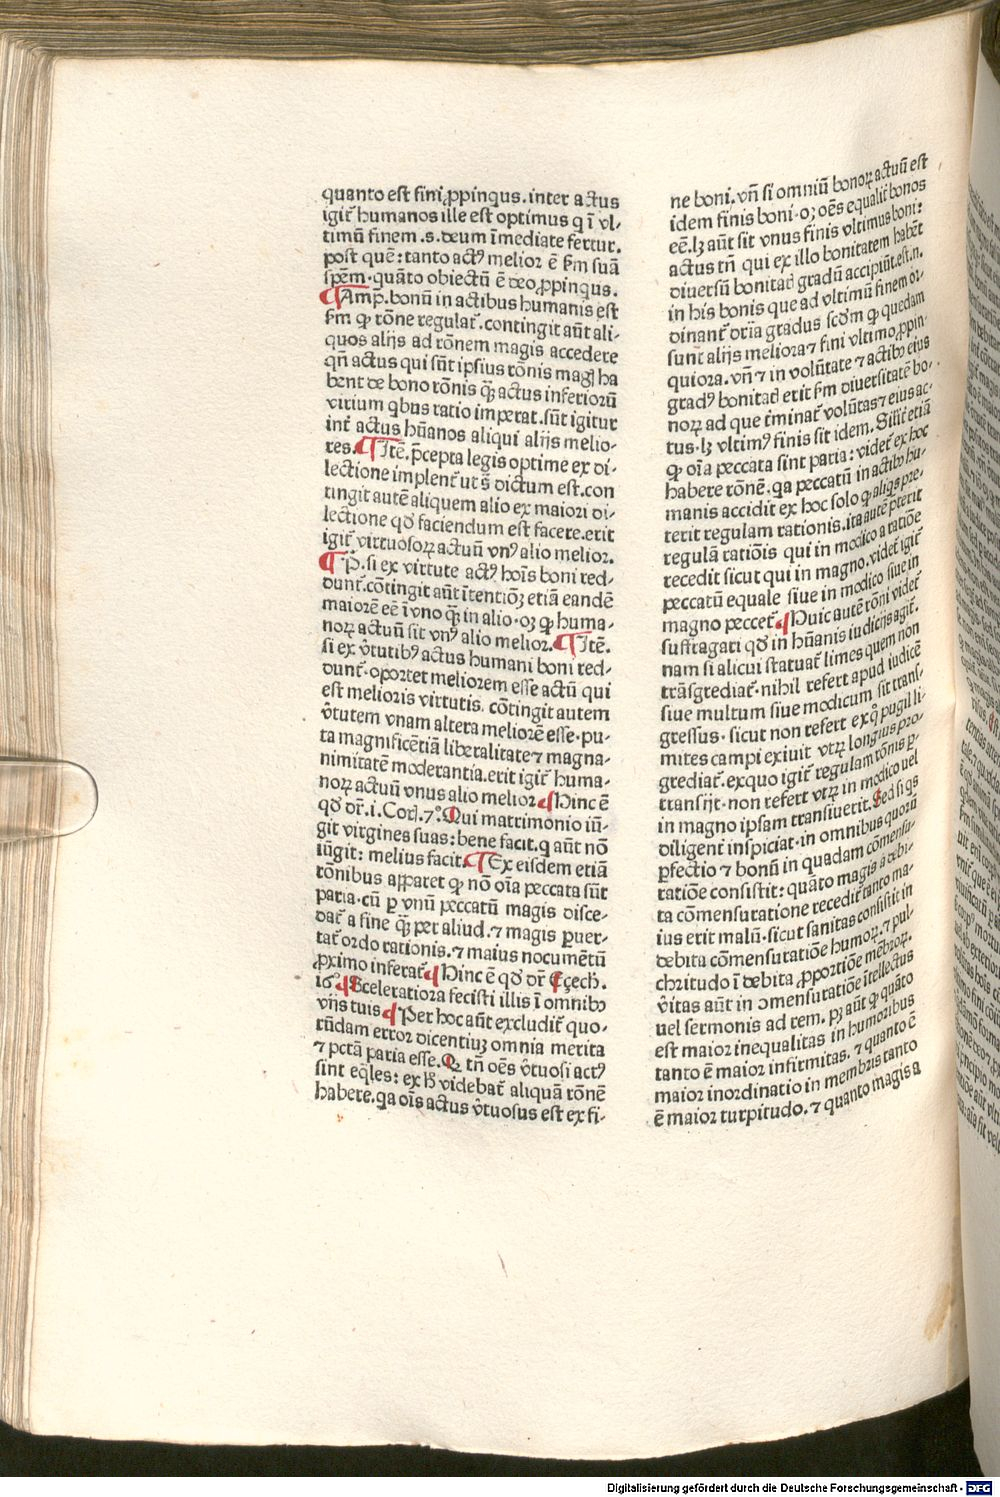 quanto est fini ꝓpinqus. inter actus
igit̃ humanos ille est optimus q ĩ vl-
timũ finem .s. deum ĩmediate fertur.
post quẽ: tanto actꝰ melior ẽ ẜm suã
spẽm. quãto obiectũ ẽ deo ꝓpinqus.
¶ Amp. bonũ in actibus humanis est
ẜm ꝙ rõne regulat̃. contingit aũt ali-
quos alijs ad rõnem magis accedere
qñ actus qui sũt ipsius rõnis magꝭ ha
bent de bono rõnis qꝫ̃ actus inferiorũ
virium qbus ratio imperat. sũt igitur
int̃ actus hũanos aliqui alijs melio-
res. ¶ Itẽ. p̃cepta legis optime ex di-
lectione implent̃ ut s̃ dictum est. con
tingit autẽ aliquem alio ex maiori di-
lectione qđ faciendum est facere. erit
igit̃ virtuosoꝝ actuũ vnꝰ alio melior.
¶ P. si ex virtute actꝰ hoĩs boni red-
dunt̃. cõtingit aũt ĩtentiõꝫ etiã eandẽ
maiorẽ eẽ ĩ vno qꝫ̃ in alio. oꝫ ꝙ huma-
noꝝ actuũ sit vnꝰ alio melior. ¶ Itẽ.
si ex v̓tutibꝰ actus humani boni red-
dunt̃. oportet meliorem esse actũ qui
est melioris virtutis. cõtingit autem
v̓tutem vnam altera meliorẽ esse. pu-
ta magnificẽtiã liberalitate ⁊ magna-
nimitatẽ moderantia. erit igit̃ huma-
noꝝ actuũ vnus alio melior ¶ Hinc ẽ
qđ dr̃. i. Corꝭ. 7°. Qui matrimonio iũ-
git virgines suas: bene facit. q aũt nõ
iũgit: melius facit. ¶ Ex eisdem etiã
rõnibus apparet ꝙ nõ oĩa peccata sũt
paria. cũ ꝑ vnũ peccatũ magis disce-
dat̃ a fine qꝫ̃ per aliud. ⁊ magis ꝑuer-
tat̃ ordo rationis. ⁊ maius nocumẽtũ
ꝓximo inferat̃ ¶ Hinc ẽ qđ dr̃ Eçech.
16°. ¶ Sceleratiora fecisti illis ĩ omnibꝰ
vijs tuis ¶ Per hoc aũt excludit̃ quo-
rũdam error dicentiuꝫ omnia merita
⁊ pctã paria esse. Q tñ oẽs v̓tuosi actꝰ
sint eq̃les: ex hͦ videbat̃ aliquã rõnẽ
habere. qa oĩs actus v̓tuosus est ex fi-
ne boni. vñ si omniũ bonoꝝ actuũ est
idem finis boni. oꝫ oẽs equalit̃ bonos
eẽ. lꝫ aũt sit vnus finis vltimus boni:
actus tñ qui ex illo bonitatem habẽt
diuersũ bonitatꝭ gradũ accipiũt. est .n.
in his bonis que ad vltimũ finem or-
dinant̃ dr̃ia gradus scđm ꝙ quedam
sunt alijs meliora ⁊ fini vltimo ꝓpin-
quiora. vñ ⁊ in volũtate ⁊ actibꝰ eius
gradꝰ bonitatꝭ erit ẜm diuersitatẽ bo-
noꝝ ad que t̓minat̃ volũtas ⁊ eius ac-
tus. lꝫ vltimꝰ finis sit idem. Silit̃ etiã
ꝙ oĩa peccata sint paria: videt̃ ex hoc
habere rõnẽ. qa peccatũ in actibꝰ hu-
manis accidit ex hoc solo ꝙ aliqs pre-
terit regulam rationis. ita autẽ p̃terit
regulã ratiõis qui in modico a ratiõe
recedit sicut qui in magno. videt̃ igit̃
peccatũ equale siue in modico siue in
magno peccet̃ ¶ Huic autẽ rõni videt̃
suffragari qđ in hũanis iudicijs agit̃.
nam si alicui statuat̃ limes quem non
trãsgrediat̃. nihil refert apud iudicẽ
siue multum siue modicum sit trans-
gressus. sicut non refert ex q̊ pugil li-
mites campi exiuit vtꝝ longius pro-
grediat̃. exquo igit̃ regulam rõnis p̃-
transijt. non refert vtꝝ in modico uel
in magno ipsam transiuerit. Sed si qs
diligent̃ inspiciat. in omnibus quoꝝ
ꝑfectio ⁊ bonũ in quadam cõmensu-
ratiõe consistit: quãto magis a debi-
ta cõmensuratione recedit̃ tanto ma-
ius erit malũ. sicut sanitas consistit in
debita cõmensuratiõe humoꝝ. ⁊ pul-
chritudo ĩ debita ꝓportiõe mẽbroꝝ.
v̓itas aũt in ꝯmensuratiõe ĩtellectus
uel sermonis ad rem. pꝫ aũt ꝙ quãto
est maior inequalitas in humoribus
tanto ẽ maior infirmitas. ⁊ quanto ẽ
maior inordinatio in membris tanto
ẽ maior turpitudo. ⁊ quanto magis a
Digitalisierung gefördert durch die Deutsche Forschungsgemeinschaft - DFG